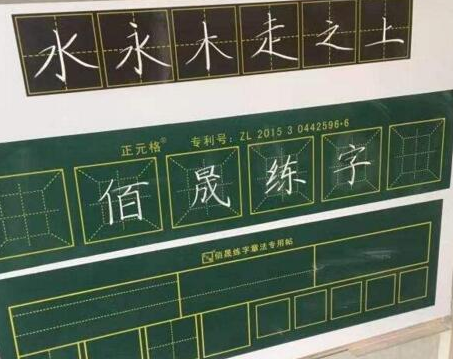 水永木走之上
正元格® 专利号：ZL 2015 3 0442596·6
佰晟练字
佰晟练字章法专用帖